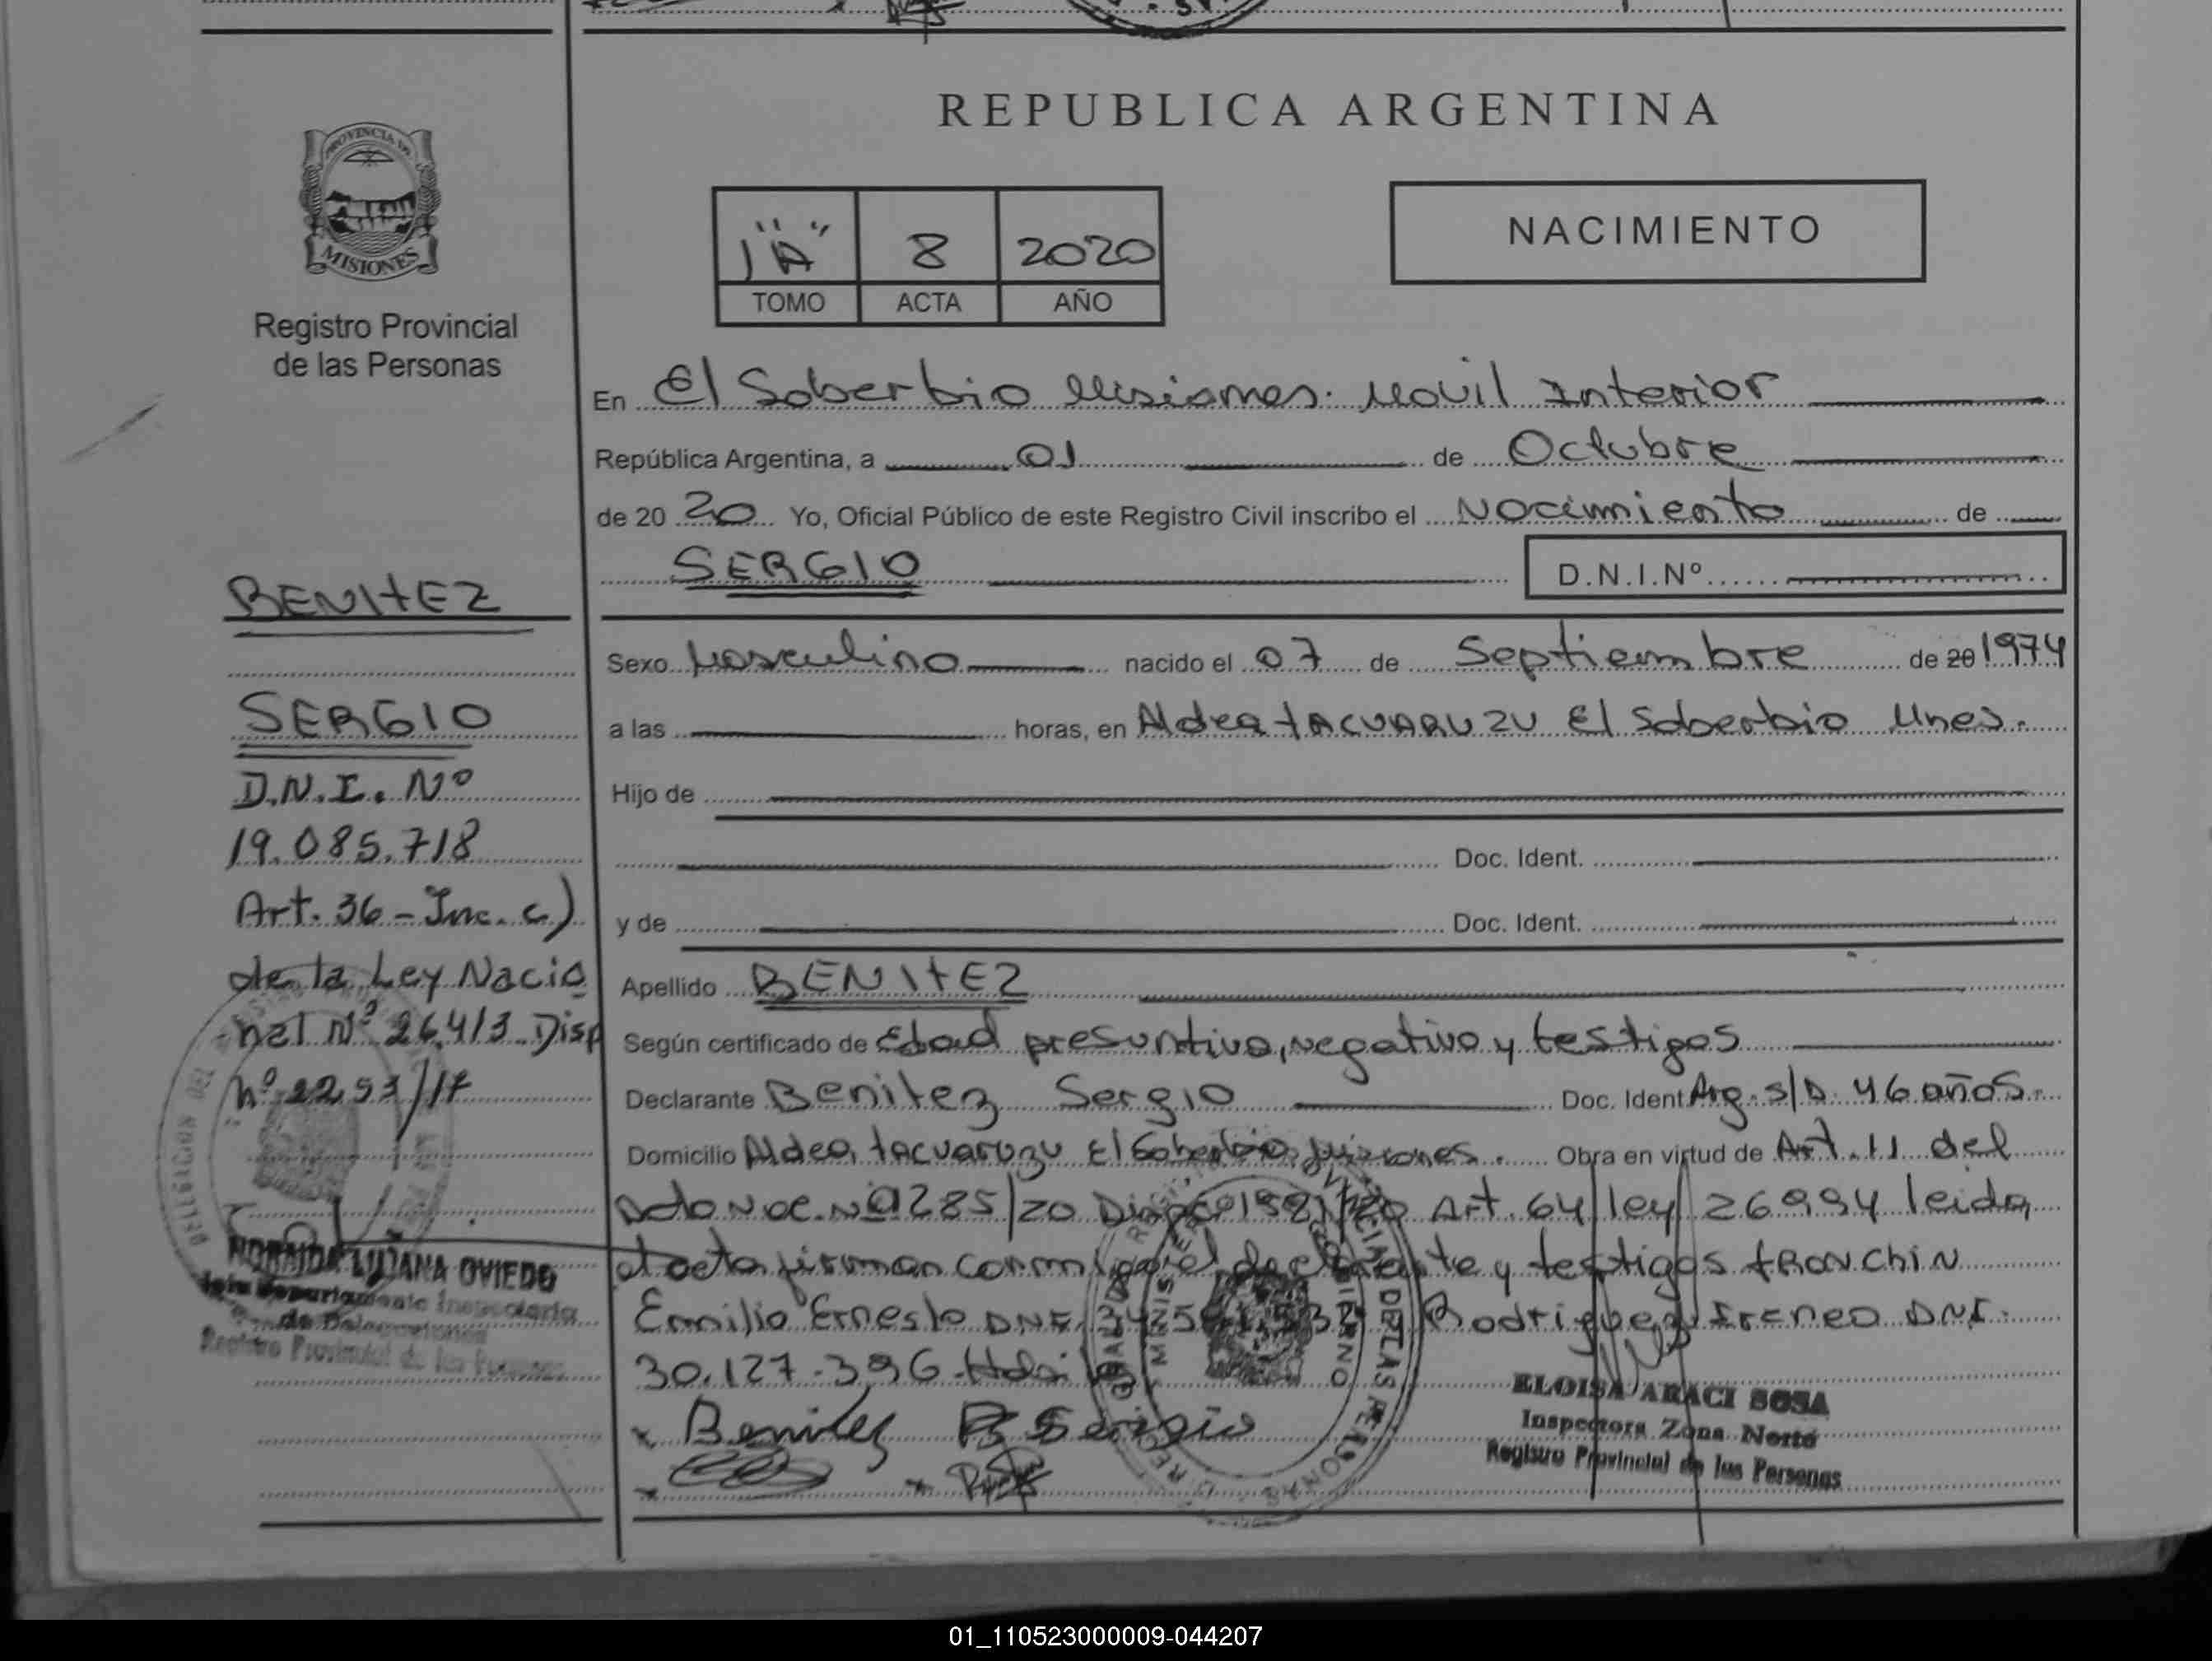 REPUBLICA ARGENTINA
PROVINCIA DE
MISIONES
Registro Provincial
de las Personas
1"A" 8 2020
TOMO ACTA AÑO
NACIMIENTO
En El Soberbio Misiones. Movil Interior
República Argentina, a 01 de Octubre
de 20 20 Yo, Oficial Público de este Registro Civil inscribo el Nacimiento de
SERGIO D.N.I.Nº
BENITEZ
SERGIO
D.N.I. Nº
19.085.718
Art. 36 - Inc. c)
de la Ley Nacio
nal Nº 26.413 Disp
Nº 2253/17
Sexo Masculino nacido el 07 de Septiembre de 20 1974
a las horas, en Aldea tACUARUZU El Soberbio Mnes.
Hijo de
Doc. Ident.
y de Doc. Ident.
Apellido BENITEZ
Según certificado de Edad presuntiva, negativo y testigos
Declarante Benitez Sergio Doc. Ident Arg. s/D. 46 años.
Domicilio Aldea tacuaruzu El Soberbio Misiones. Obra en virtud de Art. 11 del
Dcto Nac. Nº 285/20 Art. 64 ley 26994 leida
el acta firman conmigo el declarante y testigos tRONCHIN
Emilio Ernesto DNI. Rodriguez Ireneo DNI.
30.127.396
Benitez Sergio
LUJANA OVIEDO
Jefe Departamento Inspectoria
de Delegaciones
Registro Provincial de las Personas
ELOISA ARACI SOSA
Inspectora Zona Norte
Registro Provincial de las Personas
01_110523000009-044207